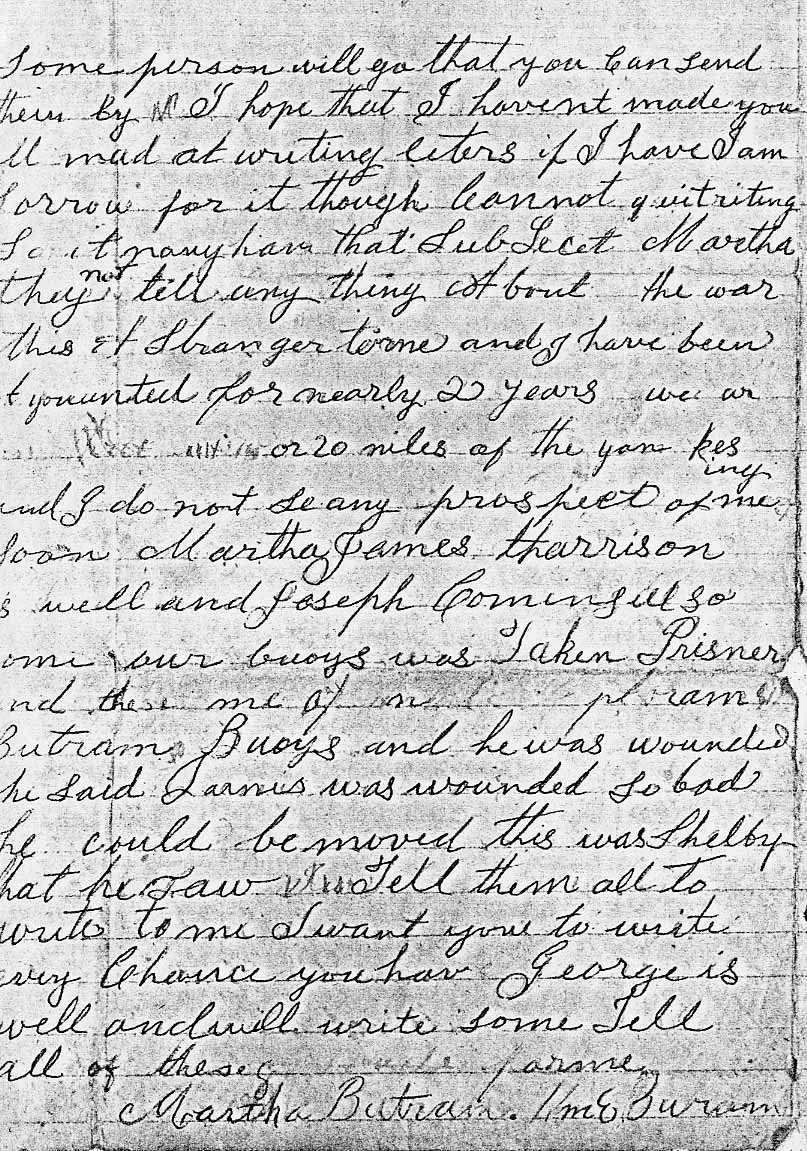 Some person will go that you Can send
them by I hope that I havent made you
all mad at writing leters if I have I am
Sorrow for it though Cannot quit riting
So it may hav that Sub Secet Martha
they not tell any thing About the war
this Stranger to me and I have been
for nearly 2 years we ar
or 20 miles of the yan kes
and I do not Se any prospect of me ing
Soon Martha James tharrison
is well and Joseph
Some our buoys was Taken Prisner
and me of
Butram Buoys and he was wounded
he Said was wounded So bad
he could be moved this was Shelby
that he Saw Tell them all to
write to me I want you to write
evry Chance you hav George is
well and will write some Tell
all of these
Martha Butram.